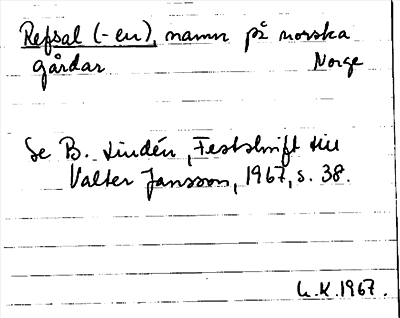 Refsal (-en), namn på norska
gårdar Norge
Se B. Lindén, Festskrift till
Valter Jansson, 1967, s. 38.
L.K. 1967.